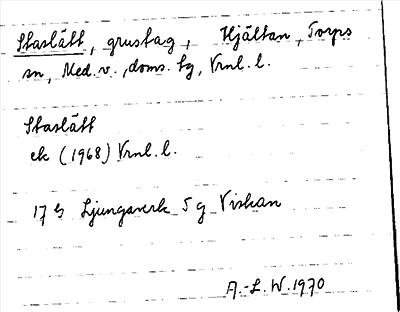 Staslätt, grustag, Hjältan, Torps
sn, Med. v., doms. tg, Vrnl. l.
Staslätt
ek (1968) Vrnl. l.
17 G Ljungaverk 5 g Viskan
A.-L. W. 1970